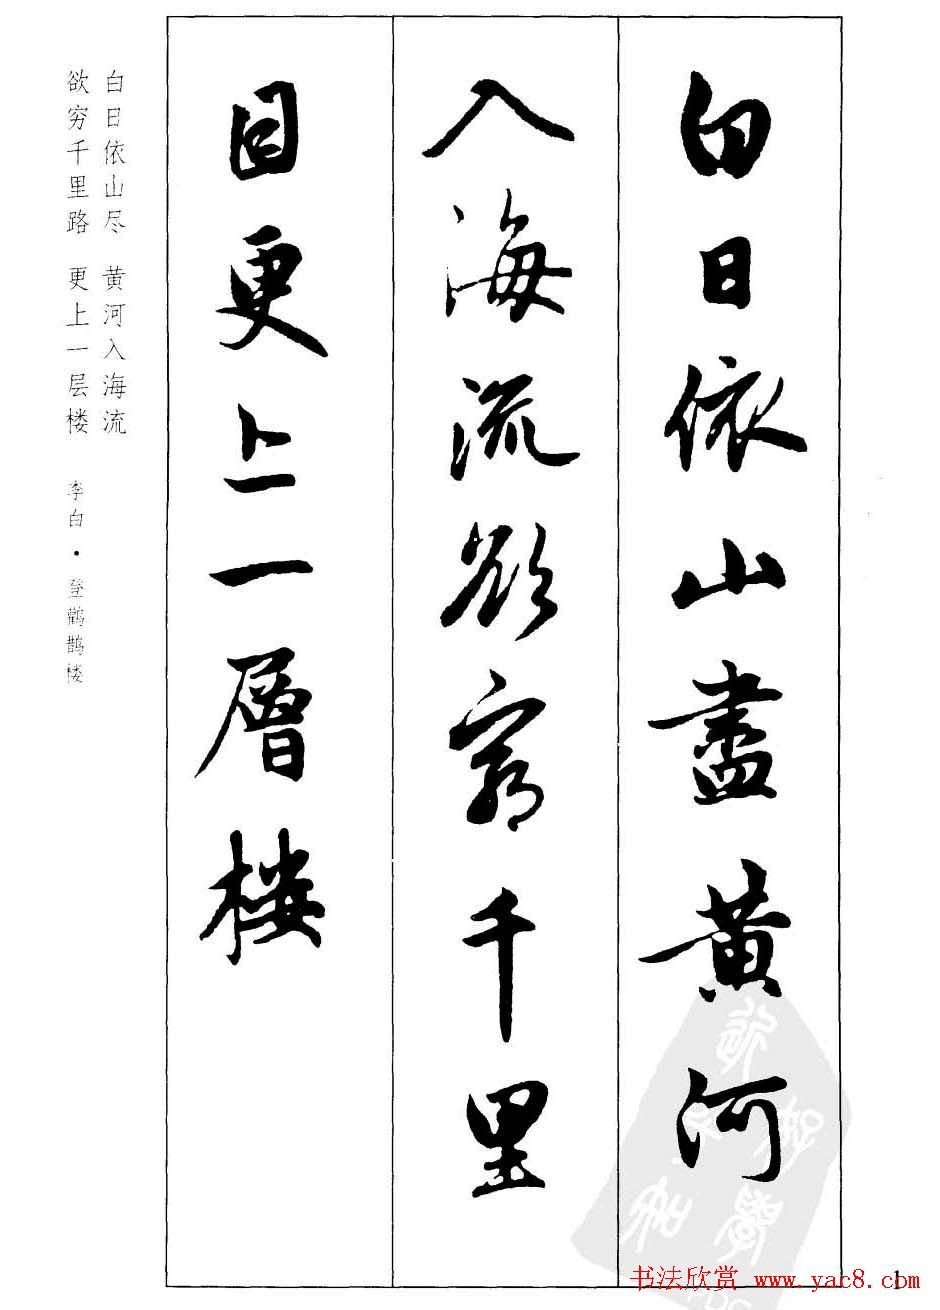 白日依山盡黄河
入海流欲窮千里
目更上一層楼
白日依山尽 黄河入海流
欲穷千里路 更上一层楼 李白·登鹳鹊楼
书法欣赏 www.yac8.com
1